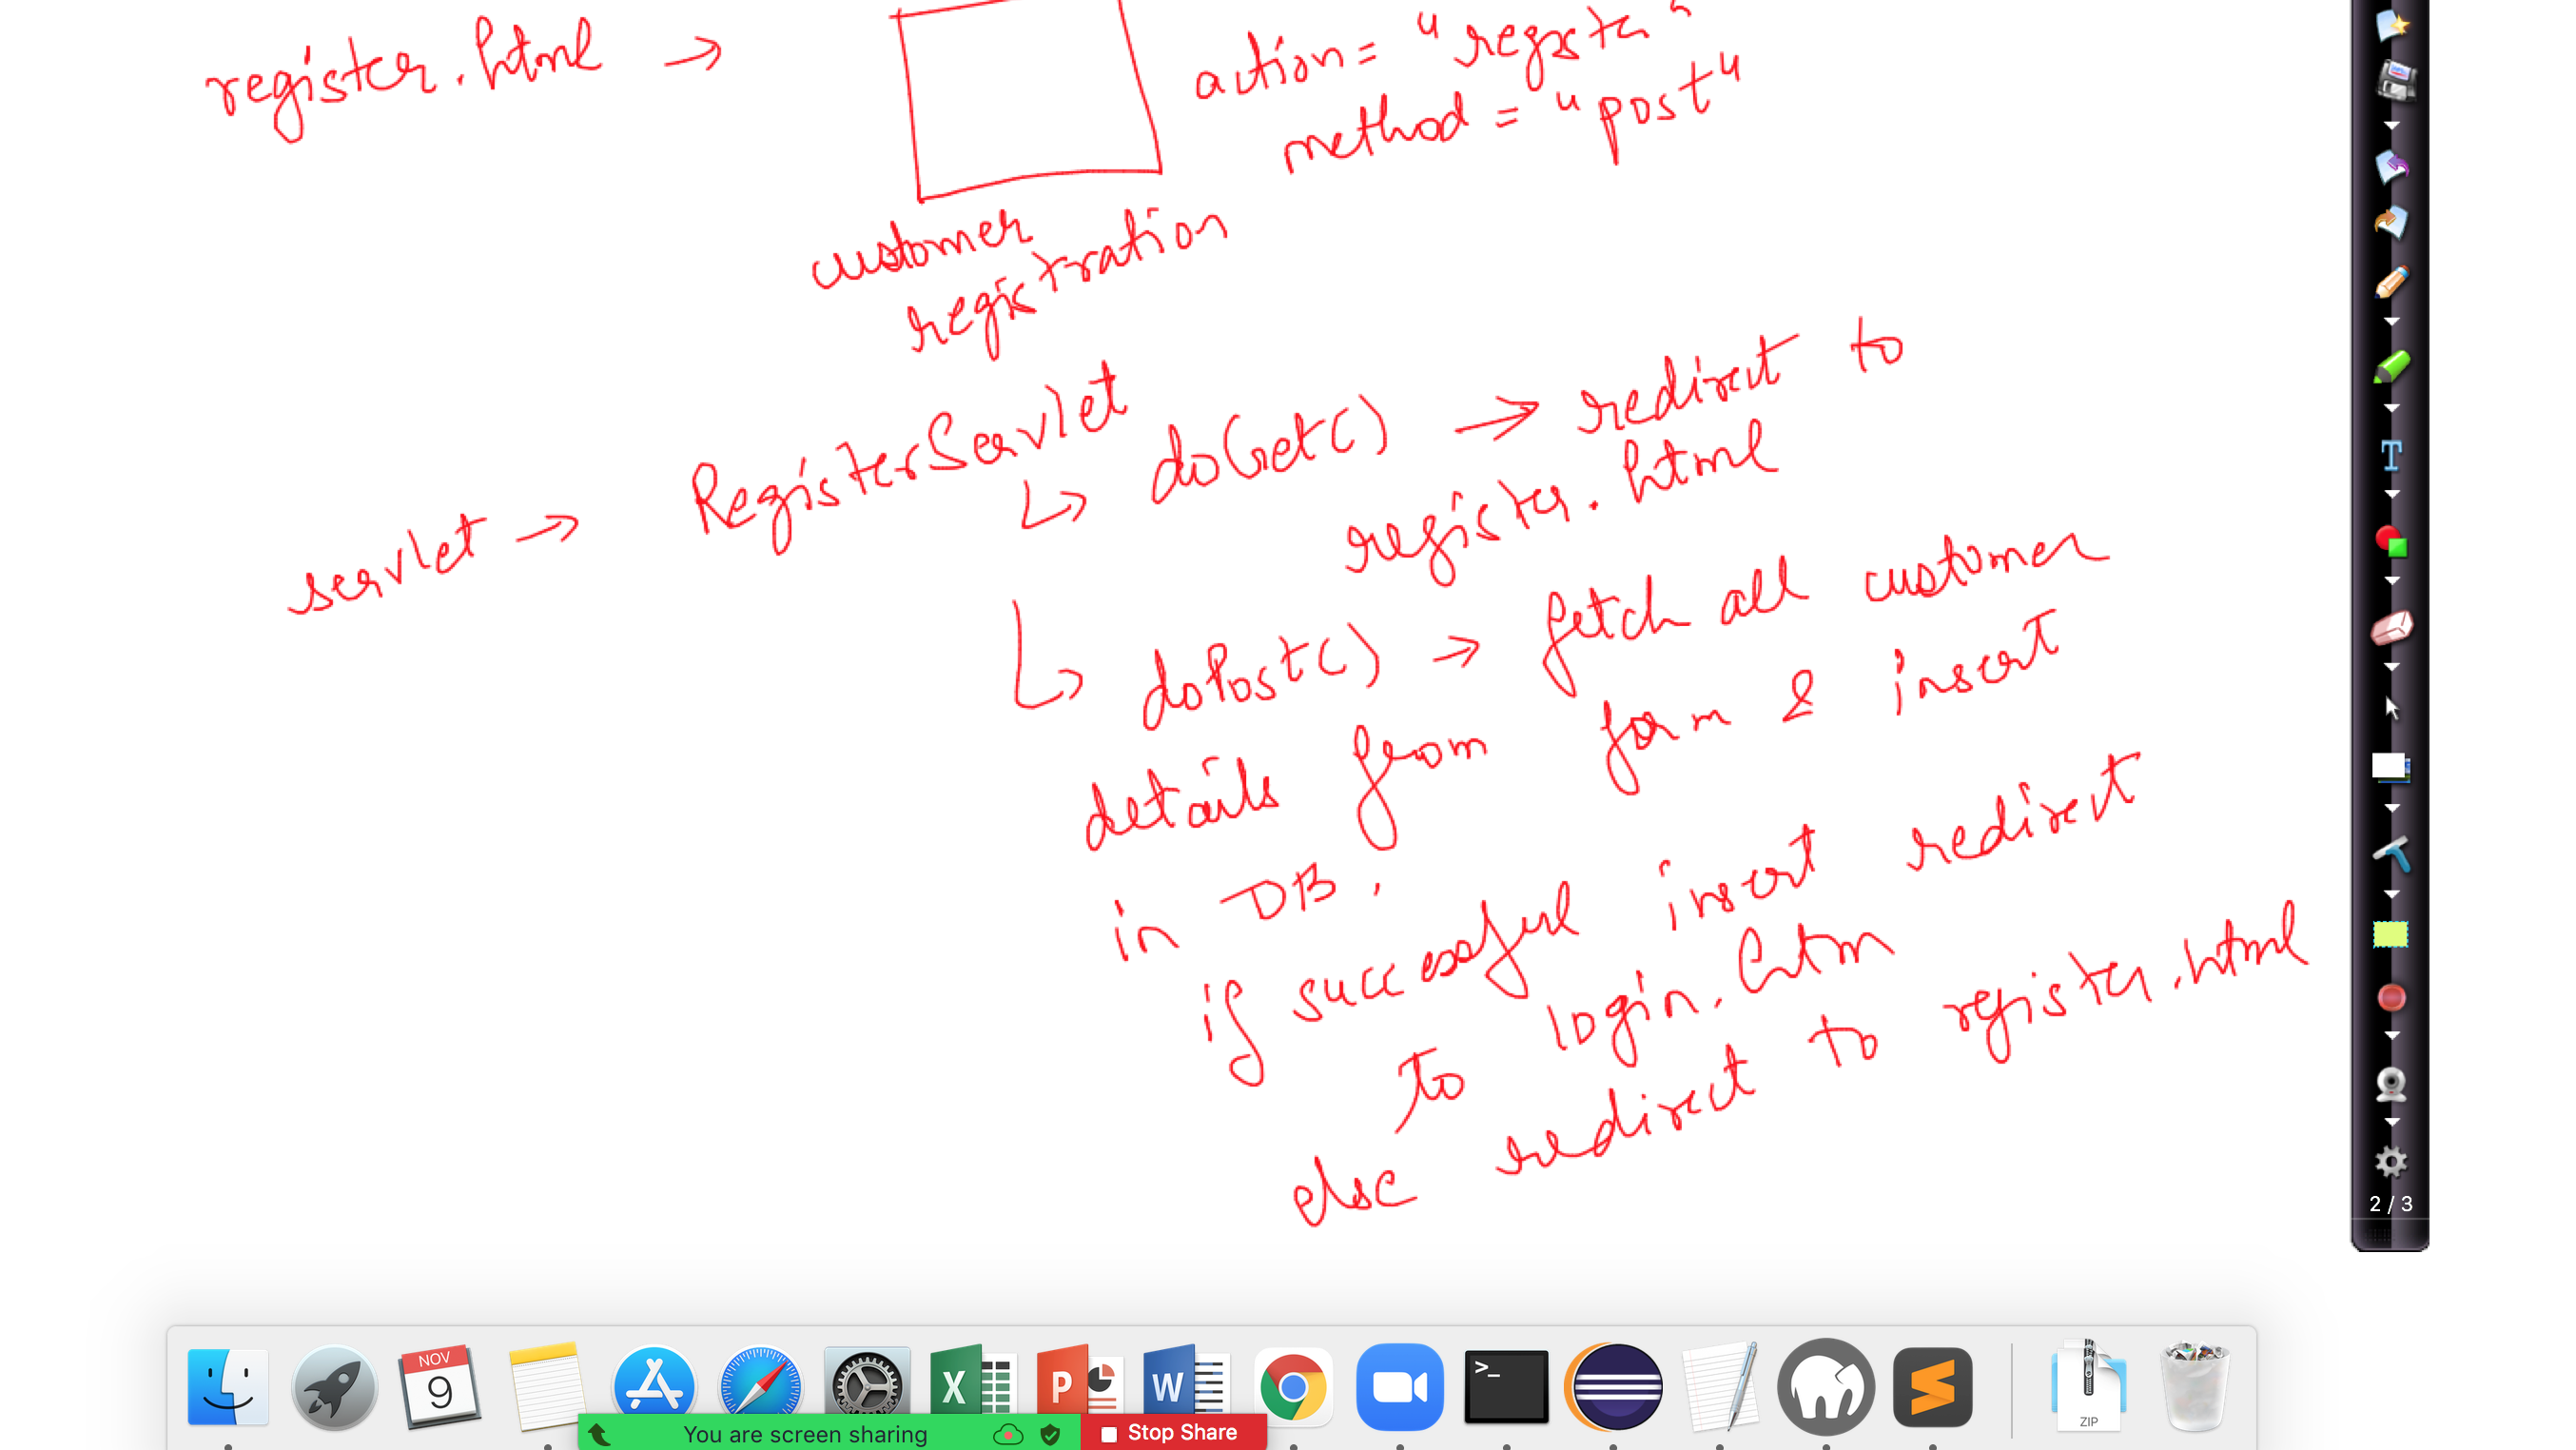 register.html → action = "register"
method = "post"
customer
registration
servlet → RegisterServlet
↳ doGet() → redirect to
register.html
↳ doPost() → fetch all customer
details from form & insert
in DB.
if successful insert redirect
to login.htm
else redirect to register.html
2 / 3
NOV
9
X
P
W
>_
ZIP
You are screen sharing
Stop Share